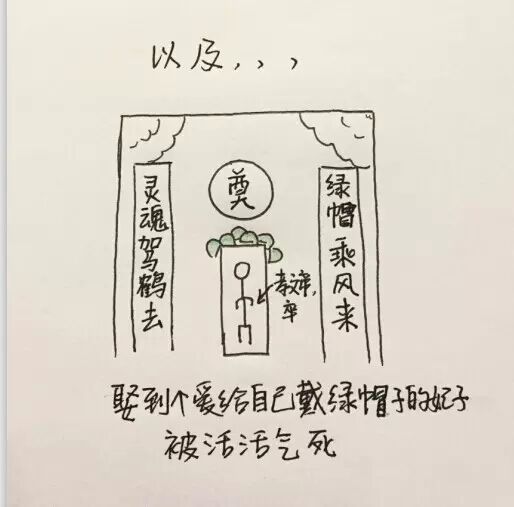 以及，，，
灵魂驾鹤去
奠
绿帽乘风来
孝文帝，
卒
娶到个爱给自己戴绿帽子的妃子
被活活气死